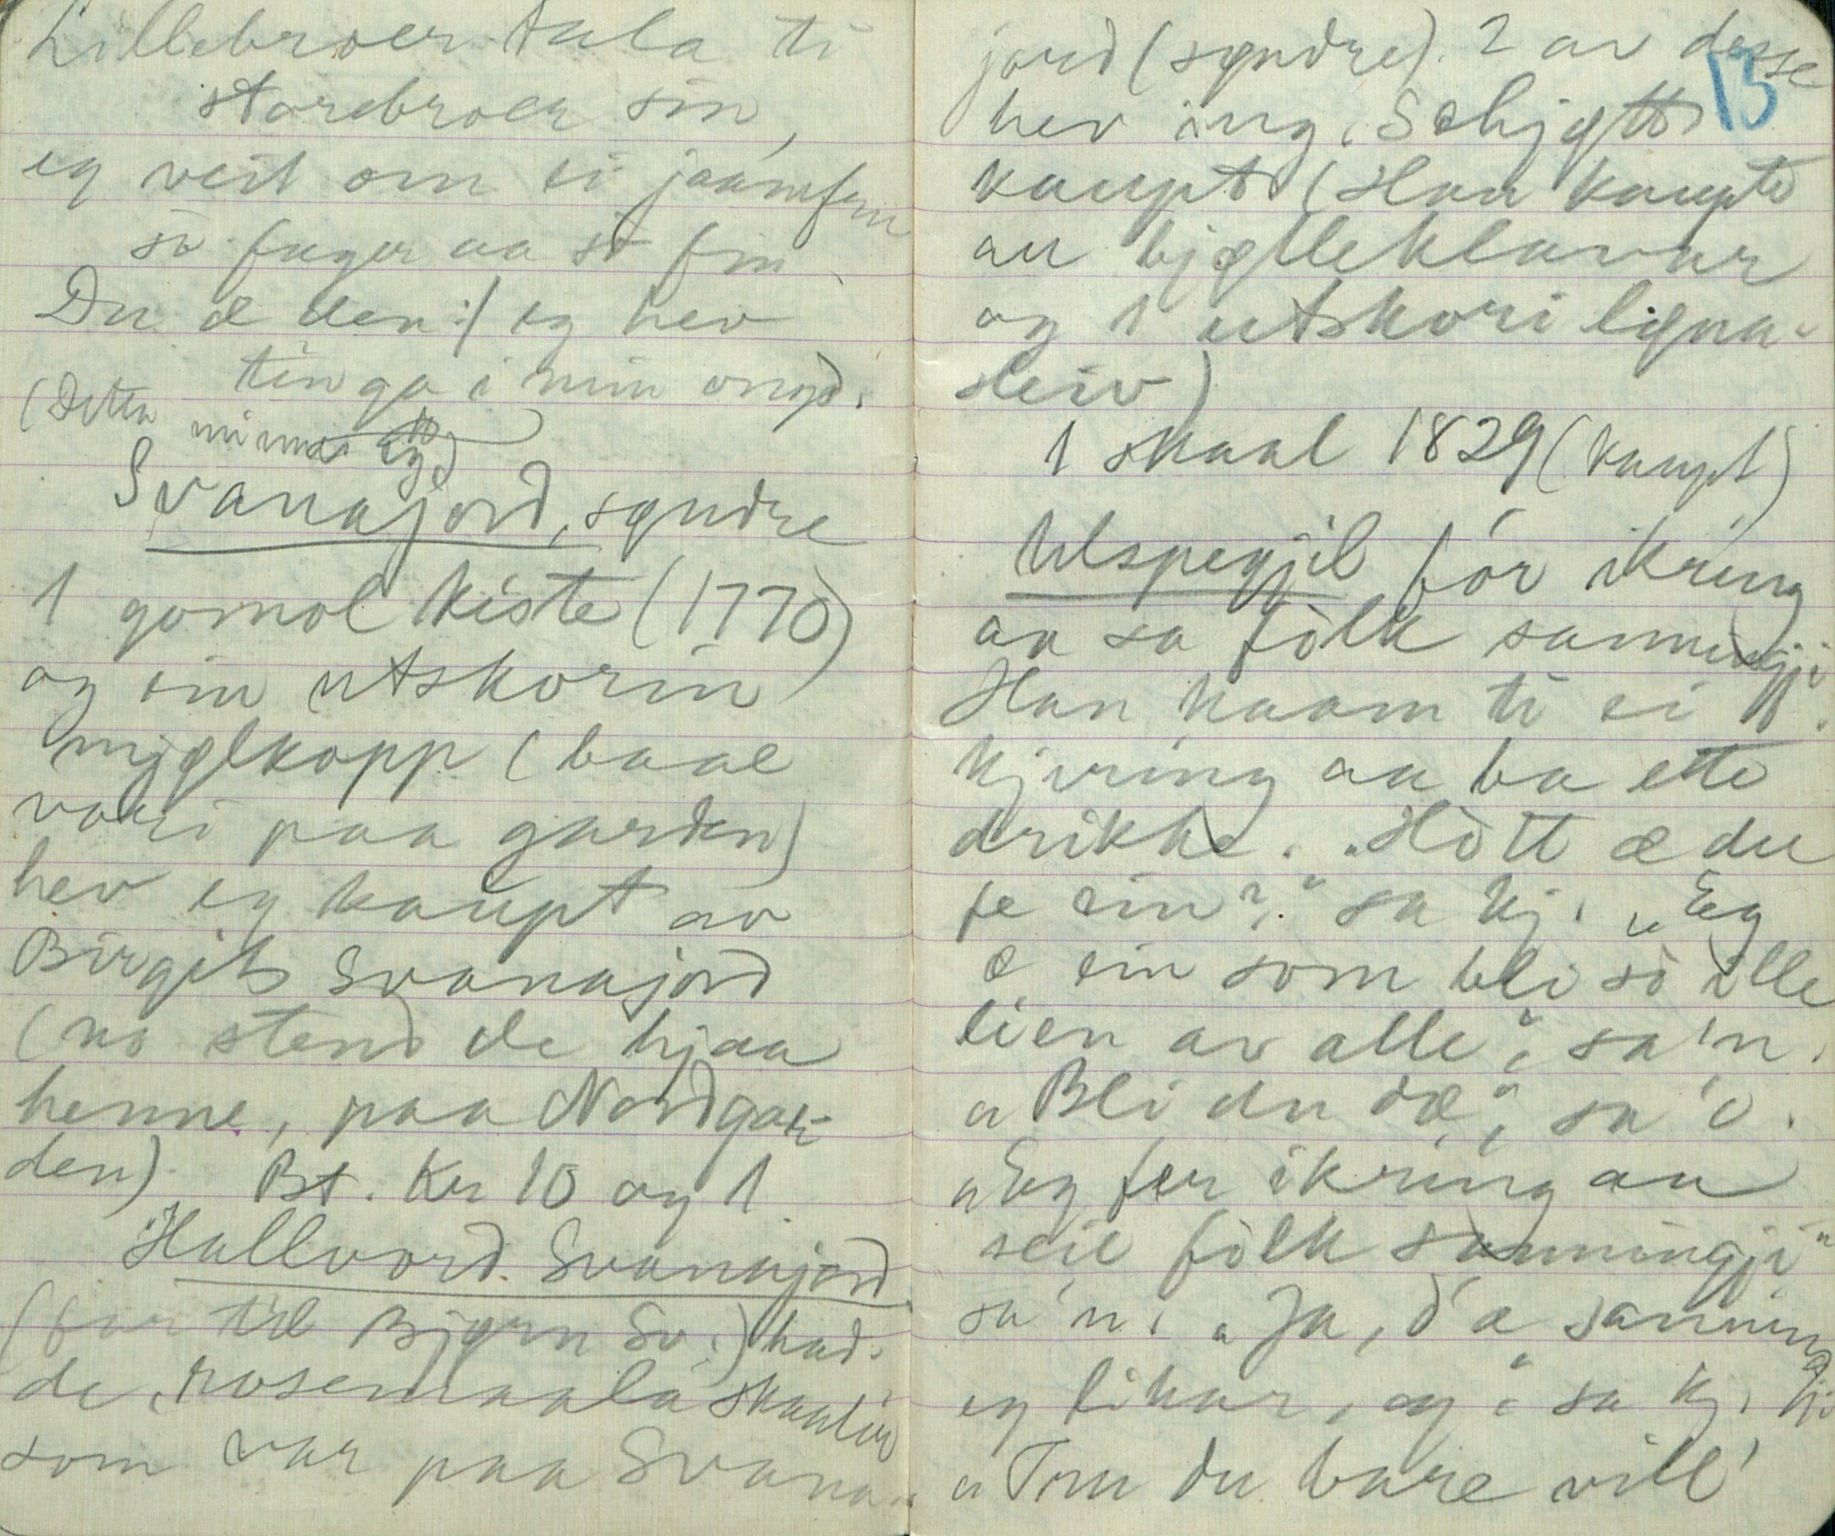 Lillebroer tala ti
storebroer sin,
eg veit om ei jaamfru
så fager aa så fin
Du æ den :/ eg hev
tinga i min ongd.
(Detta minnes eg)
Svanajord, syndre
1 gomol kiste (1770)
og ein utskorin
mjølkopp (baae
vori paa garden)
hev eg kaupt av
Birgit Svanajord
(no stend de hjaa
henne, paa Nordgar-
den) Bt. Kr 10 og 1
Hallvord Svanajord
(far til Bjørn Sv.) had-
de rosemaala skaalir
som var paa Svana-
13
jord (syndre). 2 av desse
hev ing. Schjøtt
kaupt (Han kaupte
au bjølleklavar
og 1 utskori ligna-
sleiv)
1 skaal 1829 (kaupt)
Ulspegjil fór ikring
aa sa fólk sanningji
Han kaam ti ei
kjæring aa ba ette
drikke. "Hòtt æ du
fe ein?" sa kj. "Eg
æ ein som bli so ille
lien av alle", sa'n.
"Bli du dæ", sa 'o.
"Eg fer ikring aa
seie fólk sanningji"
sa'n. "Ja, d'æ sanningji
eg likar, og" sa kj.
"Tru du bare vill'